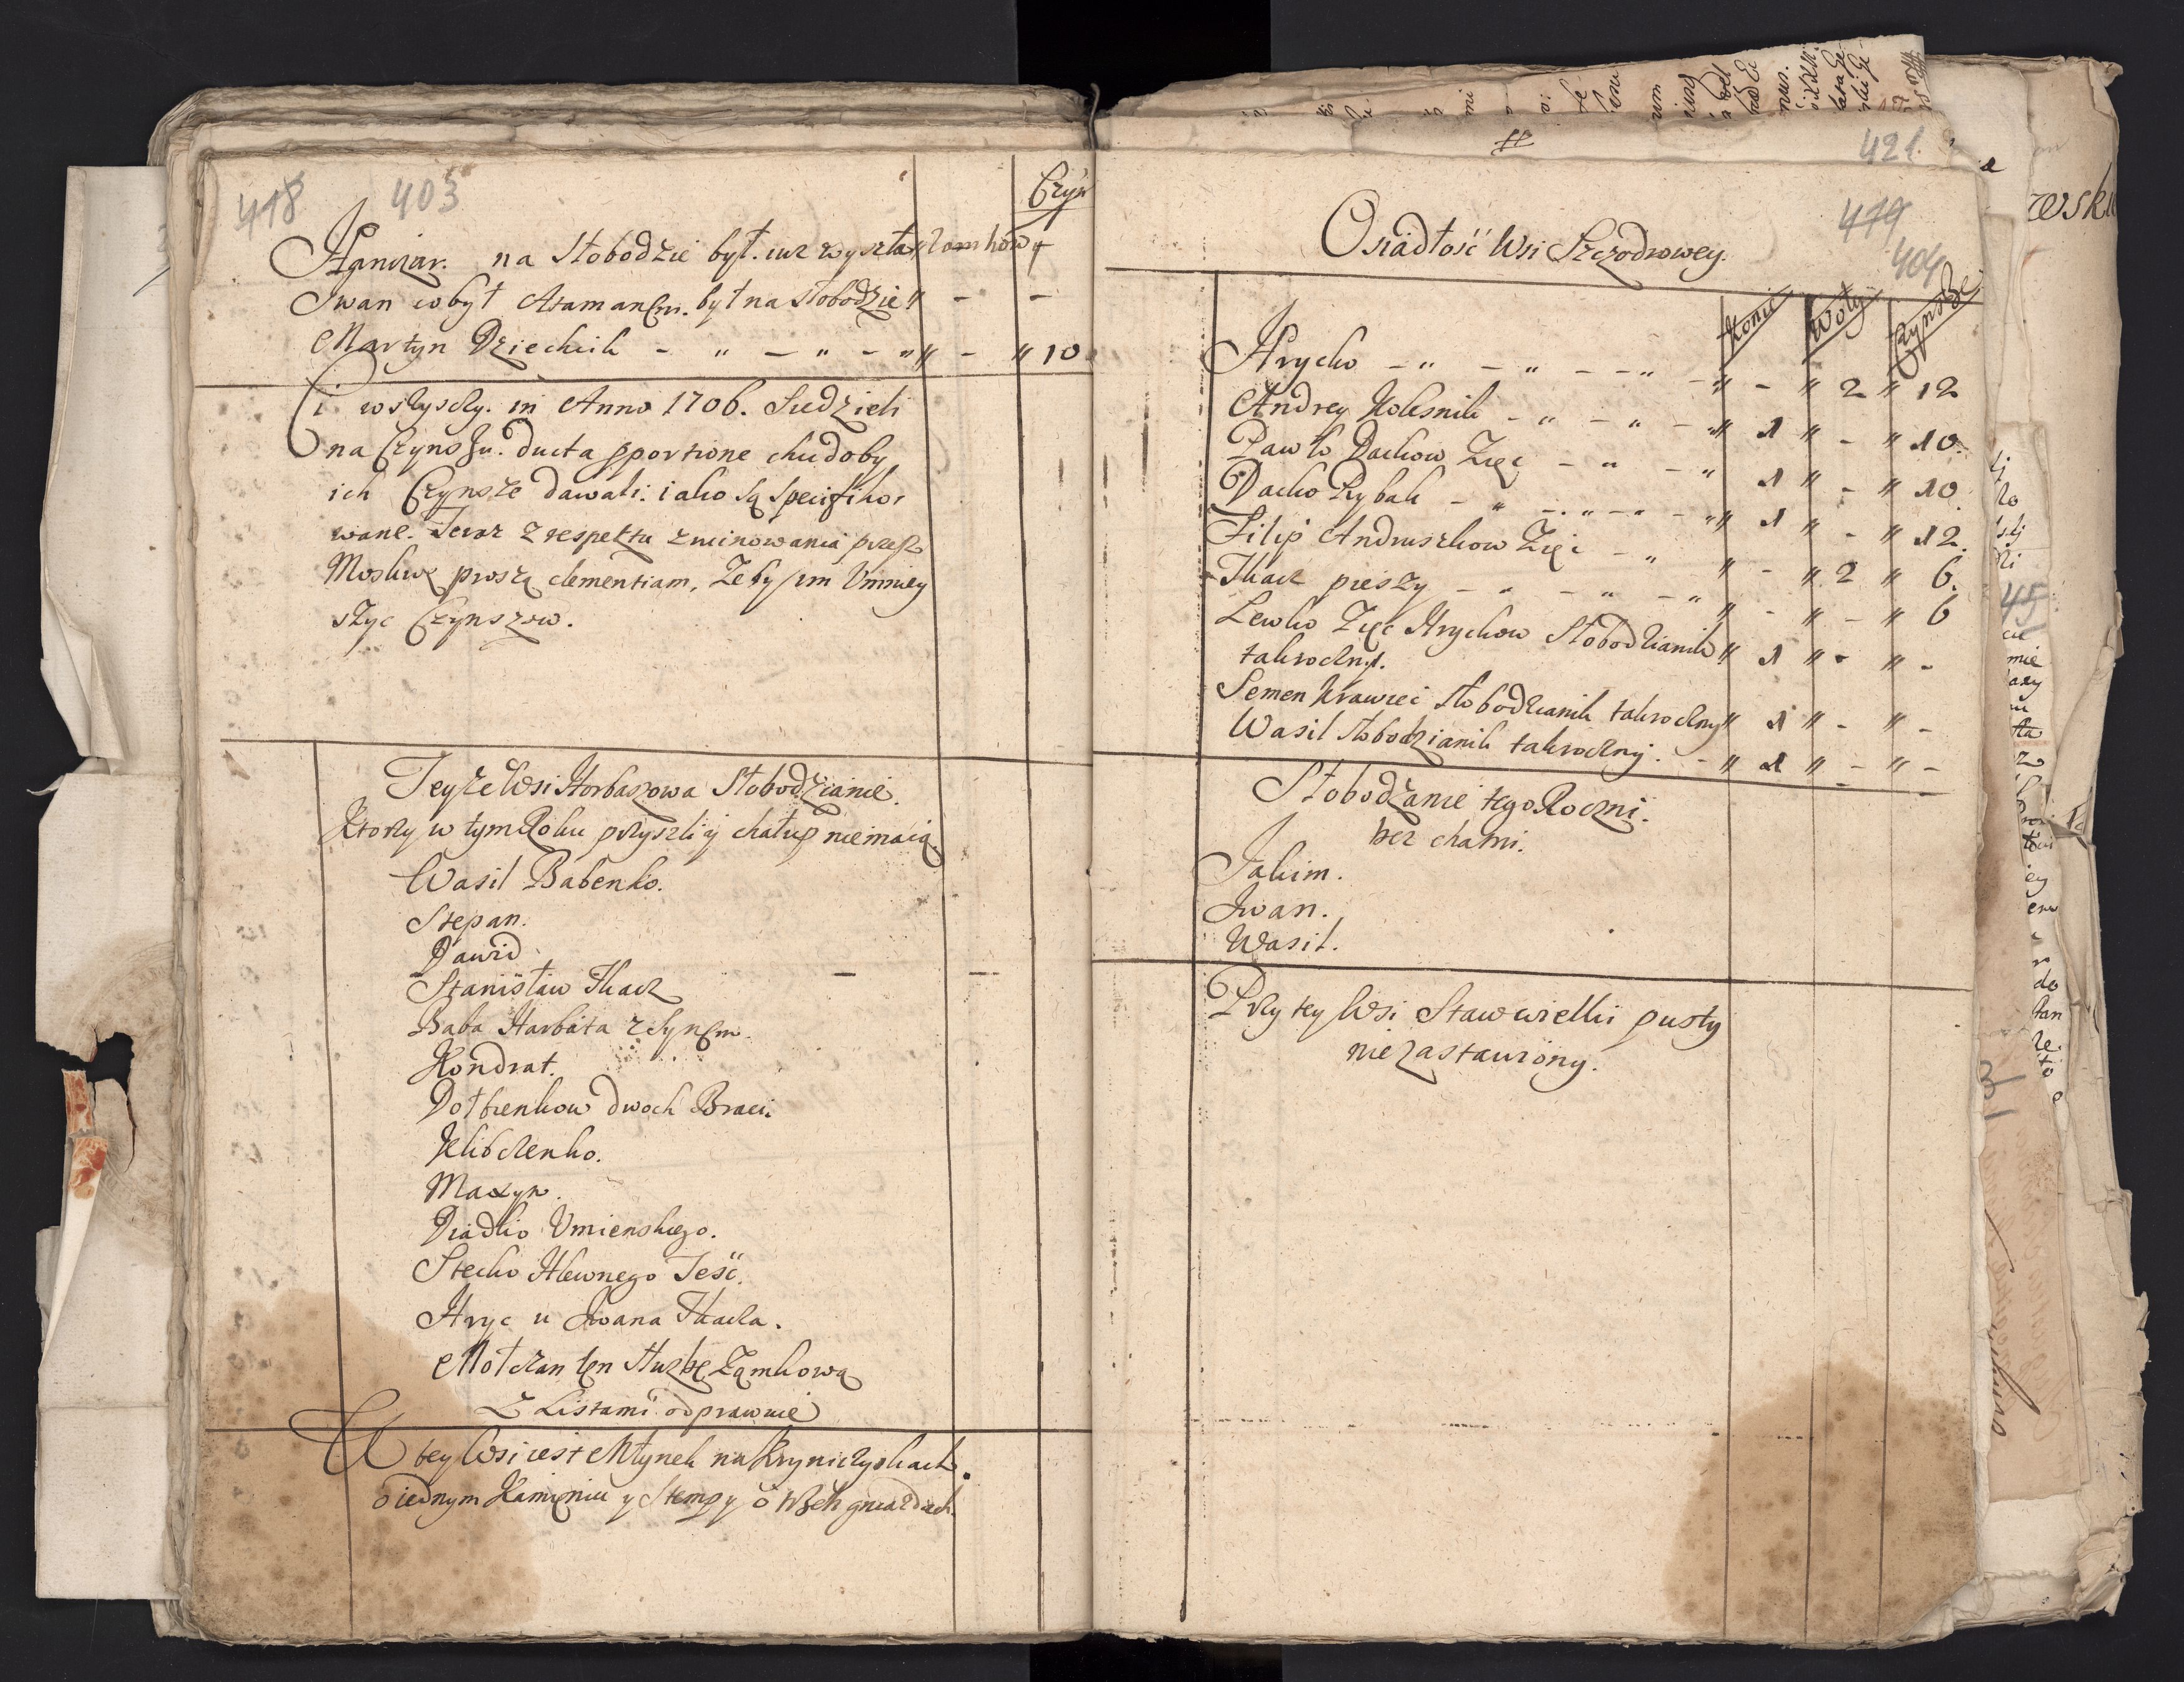 418 403
Czyn
Hanczar. na Słobodzie był. iuz wyszła zamkowy
Iwan co był Atamanem. był na słobodzie " - -
Martyn Dziechcik - " - " - " " - " 10
Ci wszyscy. in Anno 1706. Siedzieli
na Czynszu. ducta pportione chudoby
ich Czynsze dawali. iako są specifiko-
wane. Teraz z respektu zruinowania przez
Moskwę proszą clementiam, Zeby im Vmniey
szyc Czynszow.
Teyze Wsi Horbaszowa Słobodzianie.
Ktorzy w tym Roku przyszli y chałup nie maią.
Wasil Babenko.
Stepan.
Dawid
Stanisław Tkacz
Baba Harbata z Synem.
Kondrat.
Dołbienkow dwoch Braci.
Klibczenko.
Maxym.
Diadko Vmienskiego.
Stecko Hlewnego Teść.
Hryc u Iwana Tkacza.
Mołczan ten słuzbę Zamkową
z Listami odprawuie
W tey Wsi iest Młynek na Kryniczyskach.
o iednym Kamieniu y Stempy o trzech gniazdach.
421
419
404
Osiadłość Wsi Szczodrowey.
Konie Woły Czynsze
Hrycko - " - " - - " - " - " 2 " 12
Andrey Kolesnik - " - " - " 1 " - " 10.
Pawło Dackow Zięc - " - " 1 " - " 10
Dacko Rybak - " - " - " - " 1 " - " 12.
Filip Andruszkow Zięc - " " - " 2 " 6.
Tkacz pieszy - " - " - " " - " - " 6
Lewko Zięc Hryckow Słobodzianik " 1 " - " -
takroczny.
Semen Krawiec słobodzianik takroczny " 1 " - " -
Wasil słobodzianik takroczny. - " 1 " - " -
Słobodzanie tego Roczni.
bez chatni.
Jakim.
Iwan.
Wasil.
Przy tey Wsi Staw wielki pusty
nie zastawiony.